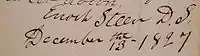 Enoch Steen D.S.
December the 13 - 1827